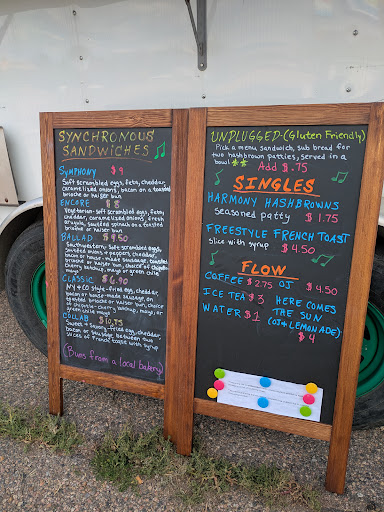 SYNCHRONOUS
SANDWICHES
SYMPHONY $9
Soft scrambled eggs, feta, cheddar,
caramelized onions, bacon on a toasted
brioche or kaiser bun
ENCORE $8
Vegetarian - soft scrambled eggs, feta,
cheddar, caramelized onions, fresh
arugula, sautéed spinach on a toasted
brioche or kaiser bun
BALLAD $9.50
Southwestern - Soft scrambled eggs,
sautéed onions + peppers, cheddar,
bacon or house-made sausage, toasted
brioche or kaiser bun, choice of chipotle
cherry ketchup, mayo or green chile
mayo
CLASSIC $6.90
NY & CO style - fried egg, cheddar,
bacon or house-made sausage, on
toasted brioche or kaiser bun, choice
of chipotle-cherry ketchup, mayo, or
green chile mayo
COLLAB $10.75
Sweet + Savory - fried egg, cheddar,
bacon or sausage, between two
slices of French toast with syrup
(Buns from a local bakery)
UNPLUGGED - (Gluten Friendly)
Pick a menu sandwich, sub bread for
two hashbrown patties, served in a
bowl
Add $.75
SINGLES
HARMONY HASHBROWNS
Seasoned patty $1.75
FREESTYLE FRENCH TOAST
Slice with syrup $4.50
FLOW
COFFEE $2.75 OJ $4.50
ICE TEA $3 HERE COMES
WATER $1 THE SUN
(OJ + LEMONADE)
$4